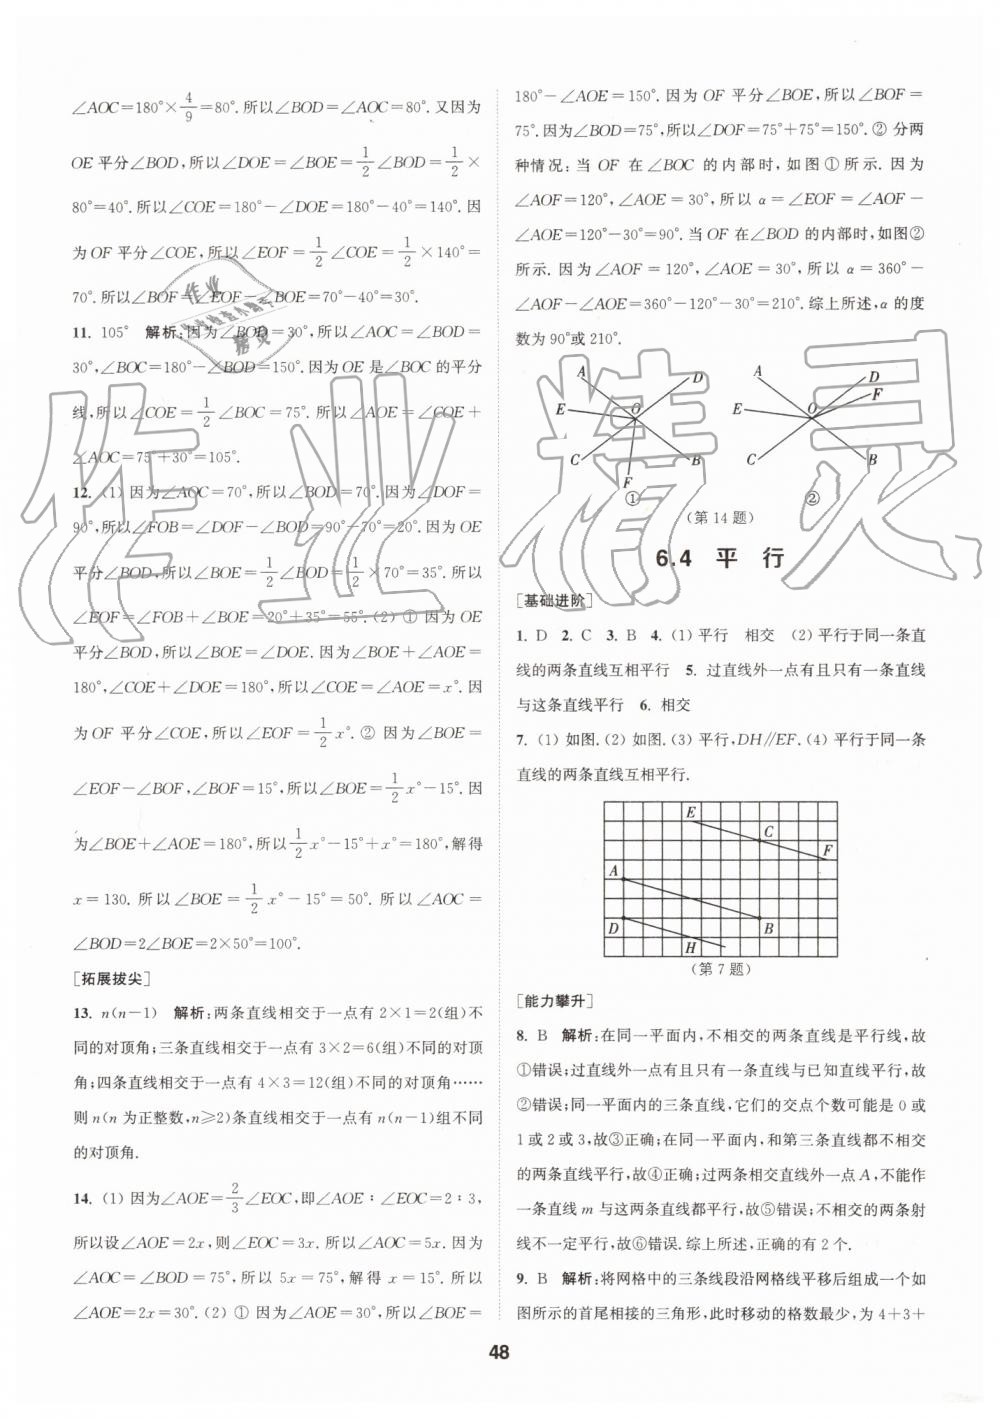 ∠AOC=180°×4/9=80°.所以∠BOD=∠AOC=80°.又因为
OE平分∠BOD,所以∠DOE=∠BOE=1/2∠BOD=1/2×
80°=40°.所以∠COE=180°-∠DOE=180°-40°=140°.因
为OF平分∠COE,所以∠EOF=1/2∠COE=1/2×140°=
70°.所以∠BOF=∠EOF-∠BOE=70°-40°=30°.
11. 105° 解析:因为∠BOD=30°,所以∠AOC=∠BOD=
30°,∠BOC=180°-∠BOD=150°.因为OE是∠BOC的平分
线,所以∠COE=1/2∠BOC=75°.所以∠AOE=∠COE+
∠AOC=75°+30°=105°.
12. (1) 因为∠AOC=70°,所以∠BOD=70°.因为∠DOF=
90°,所以∠FOB=∠DOF-∠BOD=90°-70°=20°.因为OE
平分∠BOD,所以∠BOE=1/2∠BOD=1/2×70°=35°.所以
∠EOF=∠FOB+∠BOE=20°+35°=55°.(2) ① 因为OE
平分∠BOD,所以∠BOE=∠DOE.因为∠BOE+∠AOE=
180°,∠COE+∠DOE=180°,所以∠COE=∠AOE=x°.因
为OF平分∠COE,所以∠EOF=1/2x°.② 因为∠BOE=
∠EOF-∠BOF,∠BOF=15°,所以∠BOE=1/2x°-15°.因
为∠BOE+∠AOE=180°,所以1/2x°-15°+x°=180°,解得
x=130.所以∠BOE=1/2x°-15°=50°.所以∠AOC=
∠BOD=2∠BOE=2×50°=100°.
[拓展拔尖]
13. n(n-1) 解析:两条直线相交于一点有2×1=2(组)不
同的对顶角;三条直线相交于一点有3×2=6(组)不同的对顶
角;四条直线相交于一点有4×3=12(组)不同的对顶角……
则n(n为正整数,n≥2)条直线相交于一点有n(n-1)组不同
的对顶角.
14. (1) 因为∠AOE=2/3∠EOC,即∠AOE∶∠EOC=2∶3,
所以设∠AOE=2x,则∠EOC=3x.所以∠AOC=5x.因为
∠AOC=∠BOD=75°,所以5x=75°,解得x=15°.所以
∠AOE=2x=30°.(2) ① 因为∠AOE=30°,所以∠BOE=
180°-∠AOE=150°.因为OF平分∠BOE,所以∠BOF=
75°.因为∠BOD=75°,所以∠DOF=75°+75°=150°.② 分两
种情况:当OF在∠BOC的内部时,如图①所示.因为
∠AOF=120°,∠AOE=30°,所以α=∠EOF=∠AOF-
∠AOE=120°-30°=90°.当OF在∠BOD的内部时,如图②
所示.因为∠AOF=120°,∠AOE=30°,所以α=360°-
∠AOF-∠AOE=360°-120°-30°=210°.综上所述,α的度
数为90°或210°.
A D E O C B F
①
A D F E O C B
②
(第14题)
6.4 平 行
[基础进阶]
1. D 2. C 3. B 4. (1) 平行 相交 (2) 平行于同一条直
线的两条直线互相平行 5. 过直线外一点有且只有一条直线
与这条直线平行 6. 相交
7. (1) 如图.(2) 如图.(3) 平行,DH∥EF.(4) 平行于同一条
直线的两条直线互相平行.
E
C
F
A
D
B
H
(第7题)
[能力攀升]
8. B 解析:在同一平面内,不相交的两条直线是平行线,故
①错误;过直线外一点有且只有一条直线与已知直线平行,故
②错误;同一平面内的三条直线,它们的交点个数可能是0或
1或2或3,故③正确;在同一平面内,和第三条直线都不相交
的两条直线平行,故④正确;过两条相交直线外一点A,不能作
一条直线m与这两条直线都平行,故⑤错误;不相交的两条射
线不一定平行,故⑥错误.综上所述,正确的有2个.
9. B 解析:将网格中的三条线段沿网格线平移后组成一个如
图所示的首尾相接的三角形,此时移动的格数最少,为4+3+
48
作业精灵